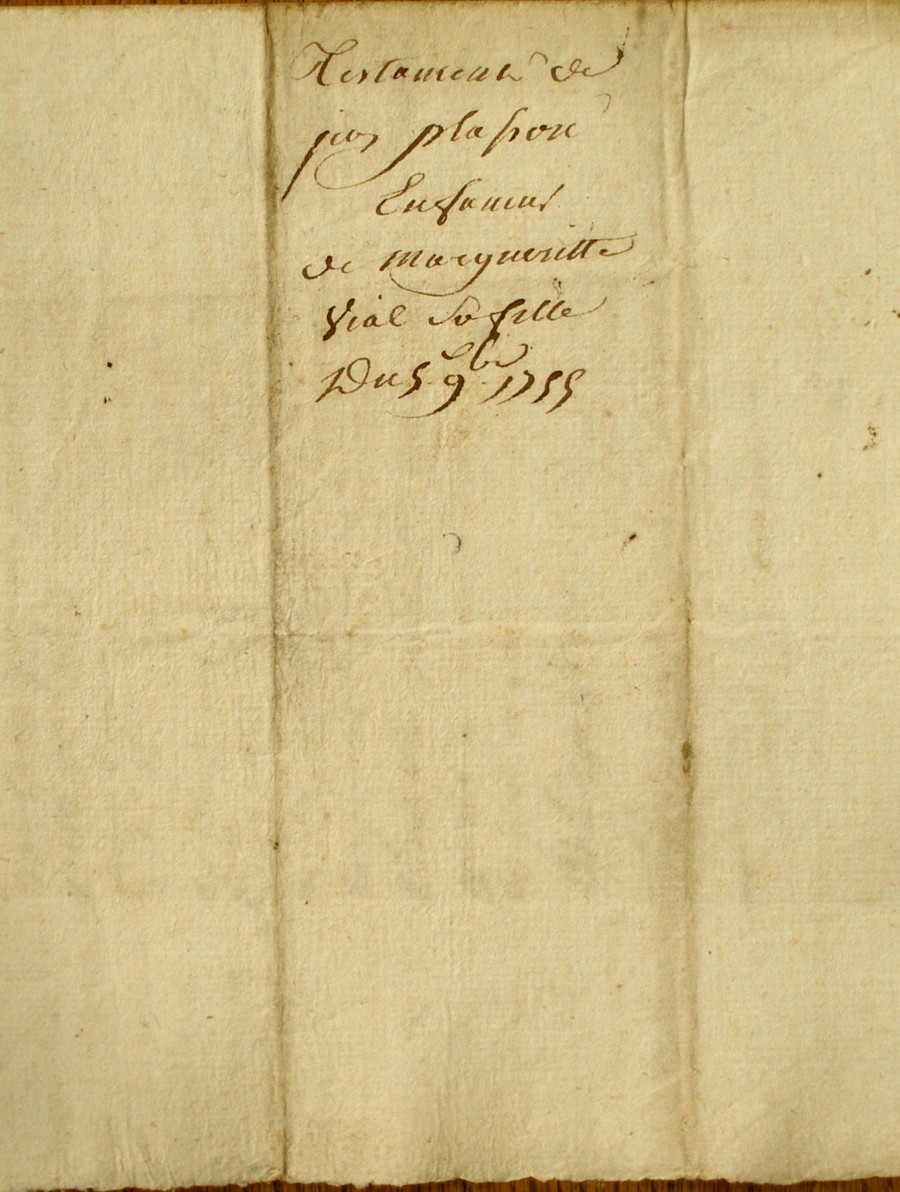 Testament de
plasson
En faveur
de margueritte
Vial Sa fille
Du 5 9bre 1755